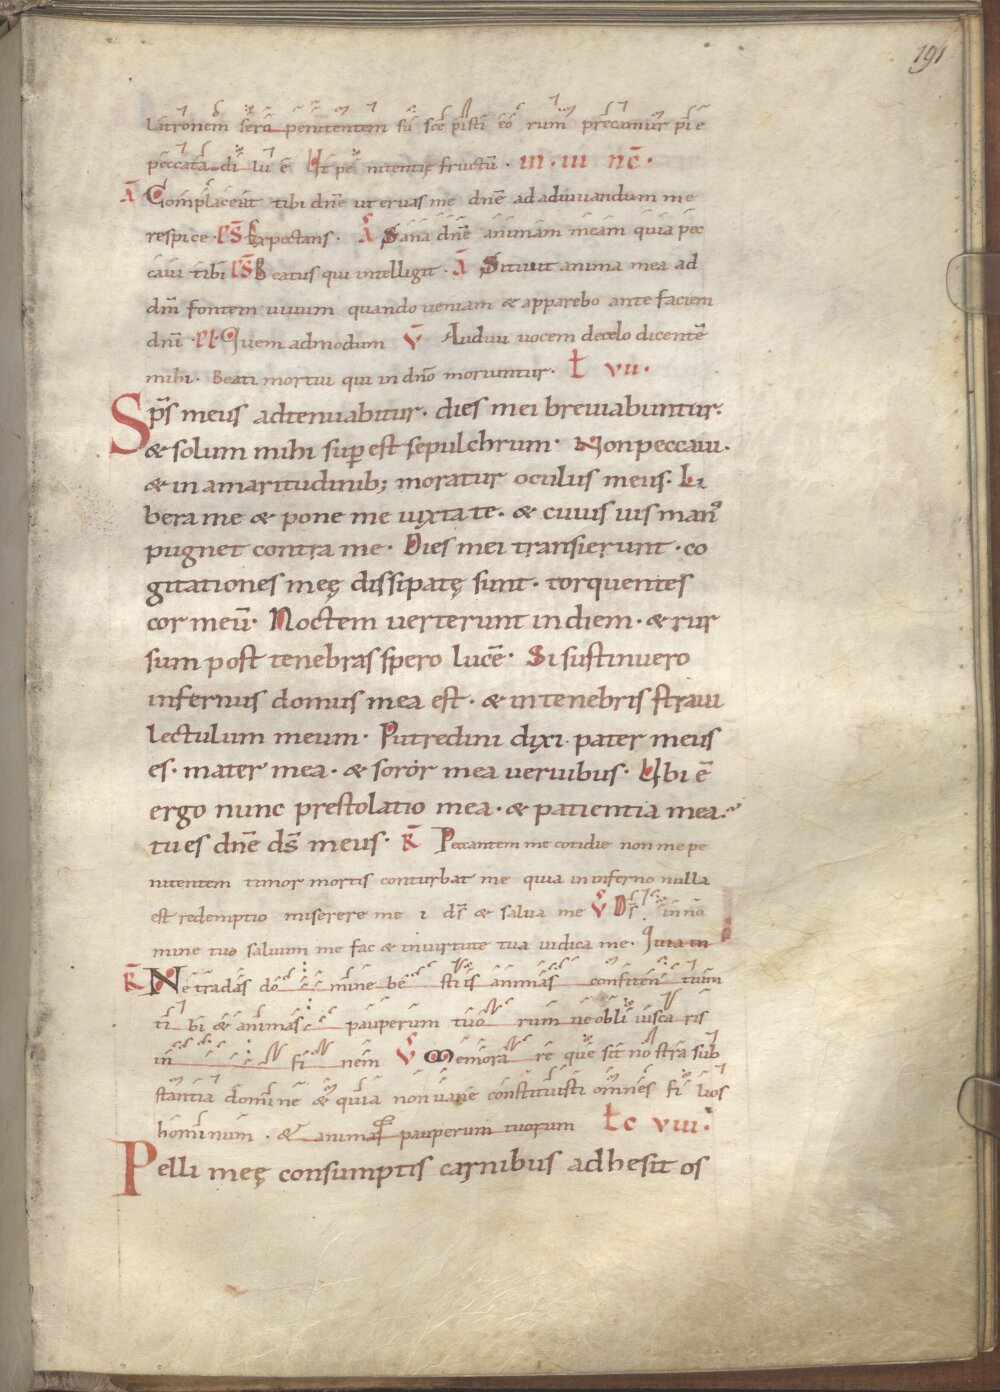 191
latronem sero penitentem suscepisti eorum precamur pie
peccata dilue Ut penitentię fructū · IN · III NC̄ ·
Ā Complaceat tibi dn̄e ut eruas me dn̄e ad adiuuandum me
respice · PS̄ Expectans · Ā Sana dn̄e animam meam quia pec
caui tibi PS̄ Beatus qui intelligit · Ā Sitiuit anima mea ad
dm̄ fontem uiuum quando ueniam & apparebo ante faciem
dn̄i · Quem admodum V̄ Audiui uocem decelo dicentē
mihi · Beati mortui qui in dn̄o moriuntur · ł VII ·
Sp̄s meus adtenuabitur · dies mei breuiabuntur ·
& solum mihi sup est sepulchrum · Non peccaui ·
& in amaritudinib; moratur oculus meus · Li
bera me & pone me iuxta te · & cuius uis man9
pugnet contra me · Dies mei transierunt · co
gitationes meę dissipatę sunt · torquentes
cor meū · Noctem uerterunt in diem · & rur
sum post tenebras spero lucē · Si sustinuero
infernus domus mea est · & in tenebris straui
lectulum meum · Putredini dixi · pater meus
es · mater mea · & soror mea uermibus · Ubi ē
ergo nunc prestolatio mea · & patientia mea ·
tu es dn̄e ds̄ meus · R̄ Peccantem me cotidie non me pe
nitentem timor mortis conturbat me quia in inferno nulla
est redemptio miserere me i ds̄ & salua me V̄ Ds̄ in no
mine tuo saluum me fac & in uirtute tua iudica me · Quia in
R̄ Ne tradas domine bestiis animas confitentium
tibi & animas pauperum tuorum ne obliuiscaris
in finem V̄ Memorare que sit nostra sub
stantia domine & quia non uane constituisti omnes filios
hominum · & animas pauperum tuorum łc VIII ·
Pelli meę consumptis carnibus adhesit os